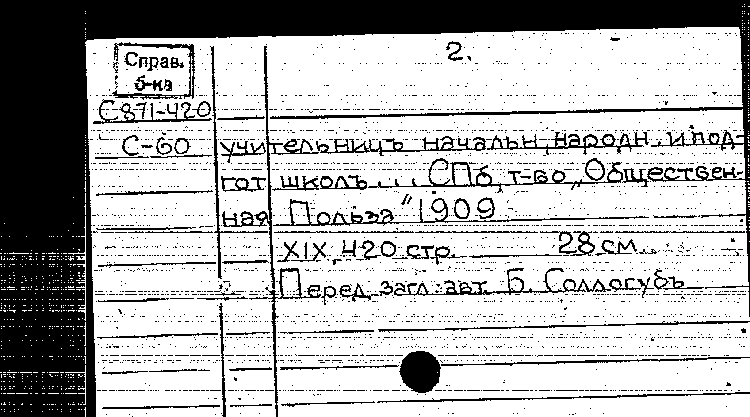 2.
Справ.
б-ка
С871-420
С-60 учительницъ начальн, народн. и под-
гот школъ... СПб, т-во „Обществен-
ная Польза" 1909
XIX, 420 стр. 28 см.
Перед загл. авт. Б. Соллогубъ